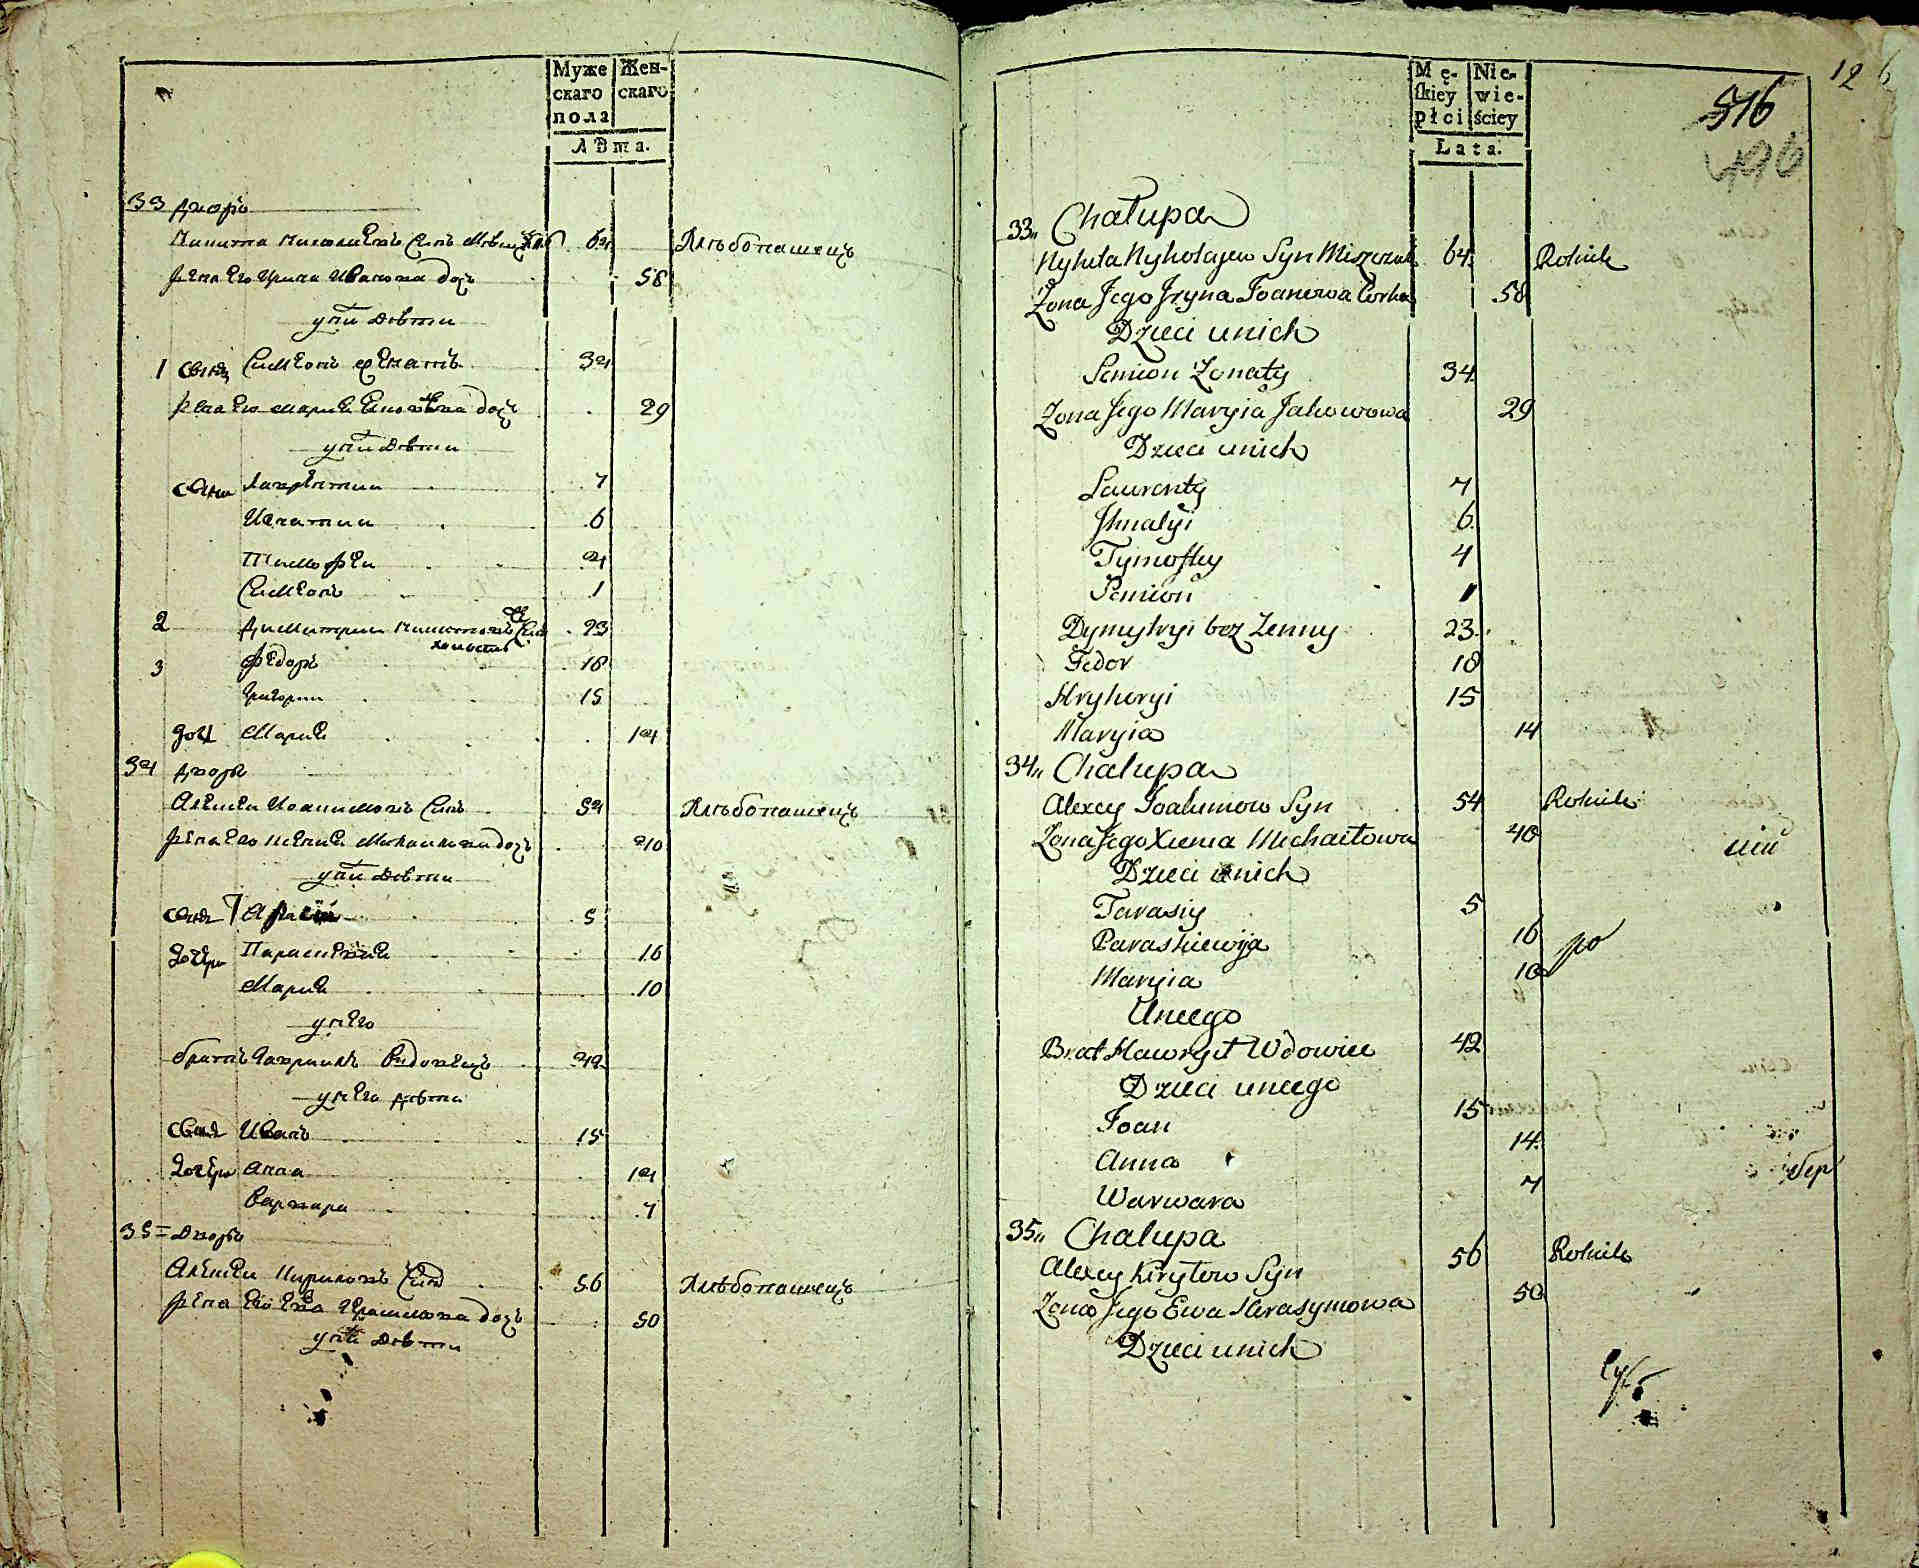 Муже
скаго
пола
Жен-
скаго
Лѣта.
33 дворъ
Никита Николаевъ Сынъ 64 Хлѣбопашецъ
жена Его Ирина Иванова дочь 58
у нїи Дѣти
1 Сынъ Симеонъ женатъ 34
жена Его Мария дочь 29
у нїи Дѣти
Сыны Лаврентии 7
Игнатии 6
Тимофеи 4
Симеонъ 1
2 Димитрии Никитовъ Сынъ 23
холостъ
3 Федоръ 18
Григории 15
дочь Мария 14
34 дворъ
Алексеи Иоакимовъ Сынъ 54 Хлѣбопашецъ
жена Его Ксения Михаилова дочь 40
у нїи Дѣти
Сынъ Тарасий 5
дочери Параскевия 16
Мария 10
у него
братъ Гавриилъ Вдовецъ 42
у него дѣти
Сынъ Иванъ 15
дочери Анна 14
Варвара 7
35 Дворъ
Алексеи Кириловъ Сынъ 56 Хлѣбопашецъ
жена Его Ева Герасимова дочь 50
у нїи Дѣти
Mę-
ſkiey
płci
Nie-
wie-
ściey
Lata.
12
516
33 Chałupa
Nykita Nykołajew Syn 64 Rolnik
Żona Jego Iryna Joanowa Corka 58
Dzieci u nich
Semion Żonaty 34
Żona Jego Maryia Jakowowa 29
Dzieci u nich
Laurenty 7
Ihnatyi 6
Tymofiey 4
Semion 1
Dymytryi bez Żenny 23
Fedor 18
Hryhoryi 15
Maryia 14
34 Chałupa
Alexey Joakimow Syn 54 Rolnik
Żona Jego Xienia Michaiłowa 40
Dzieci u nich
Tarasiy 5
Paraskiewija 16
Maryia 10
U niego
Brat Hawryił Wdowiec 42
Dzieci u niego
Joan 15
Anna 14
Warwara 7
35 Chałupa
Alexey Kiryłow Syn 56 Rolnik
Żona Jego Ewa Harasymowa 50
Dzieci u nich